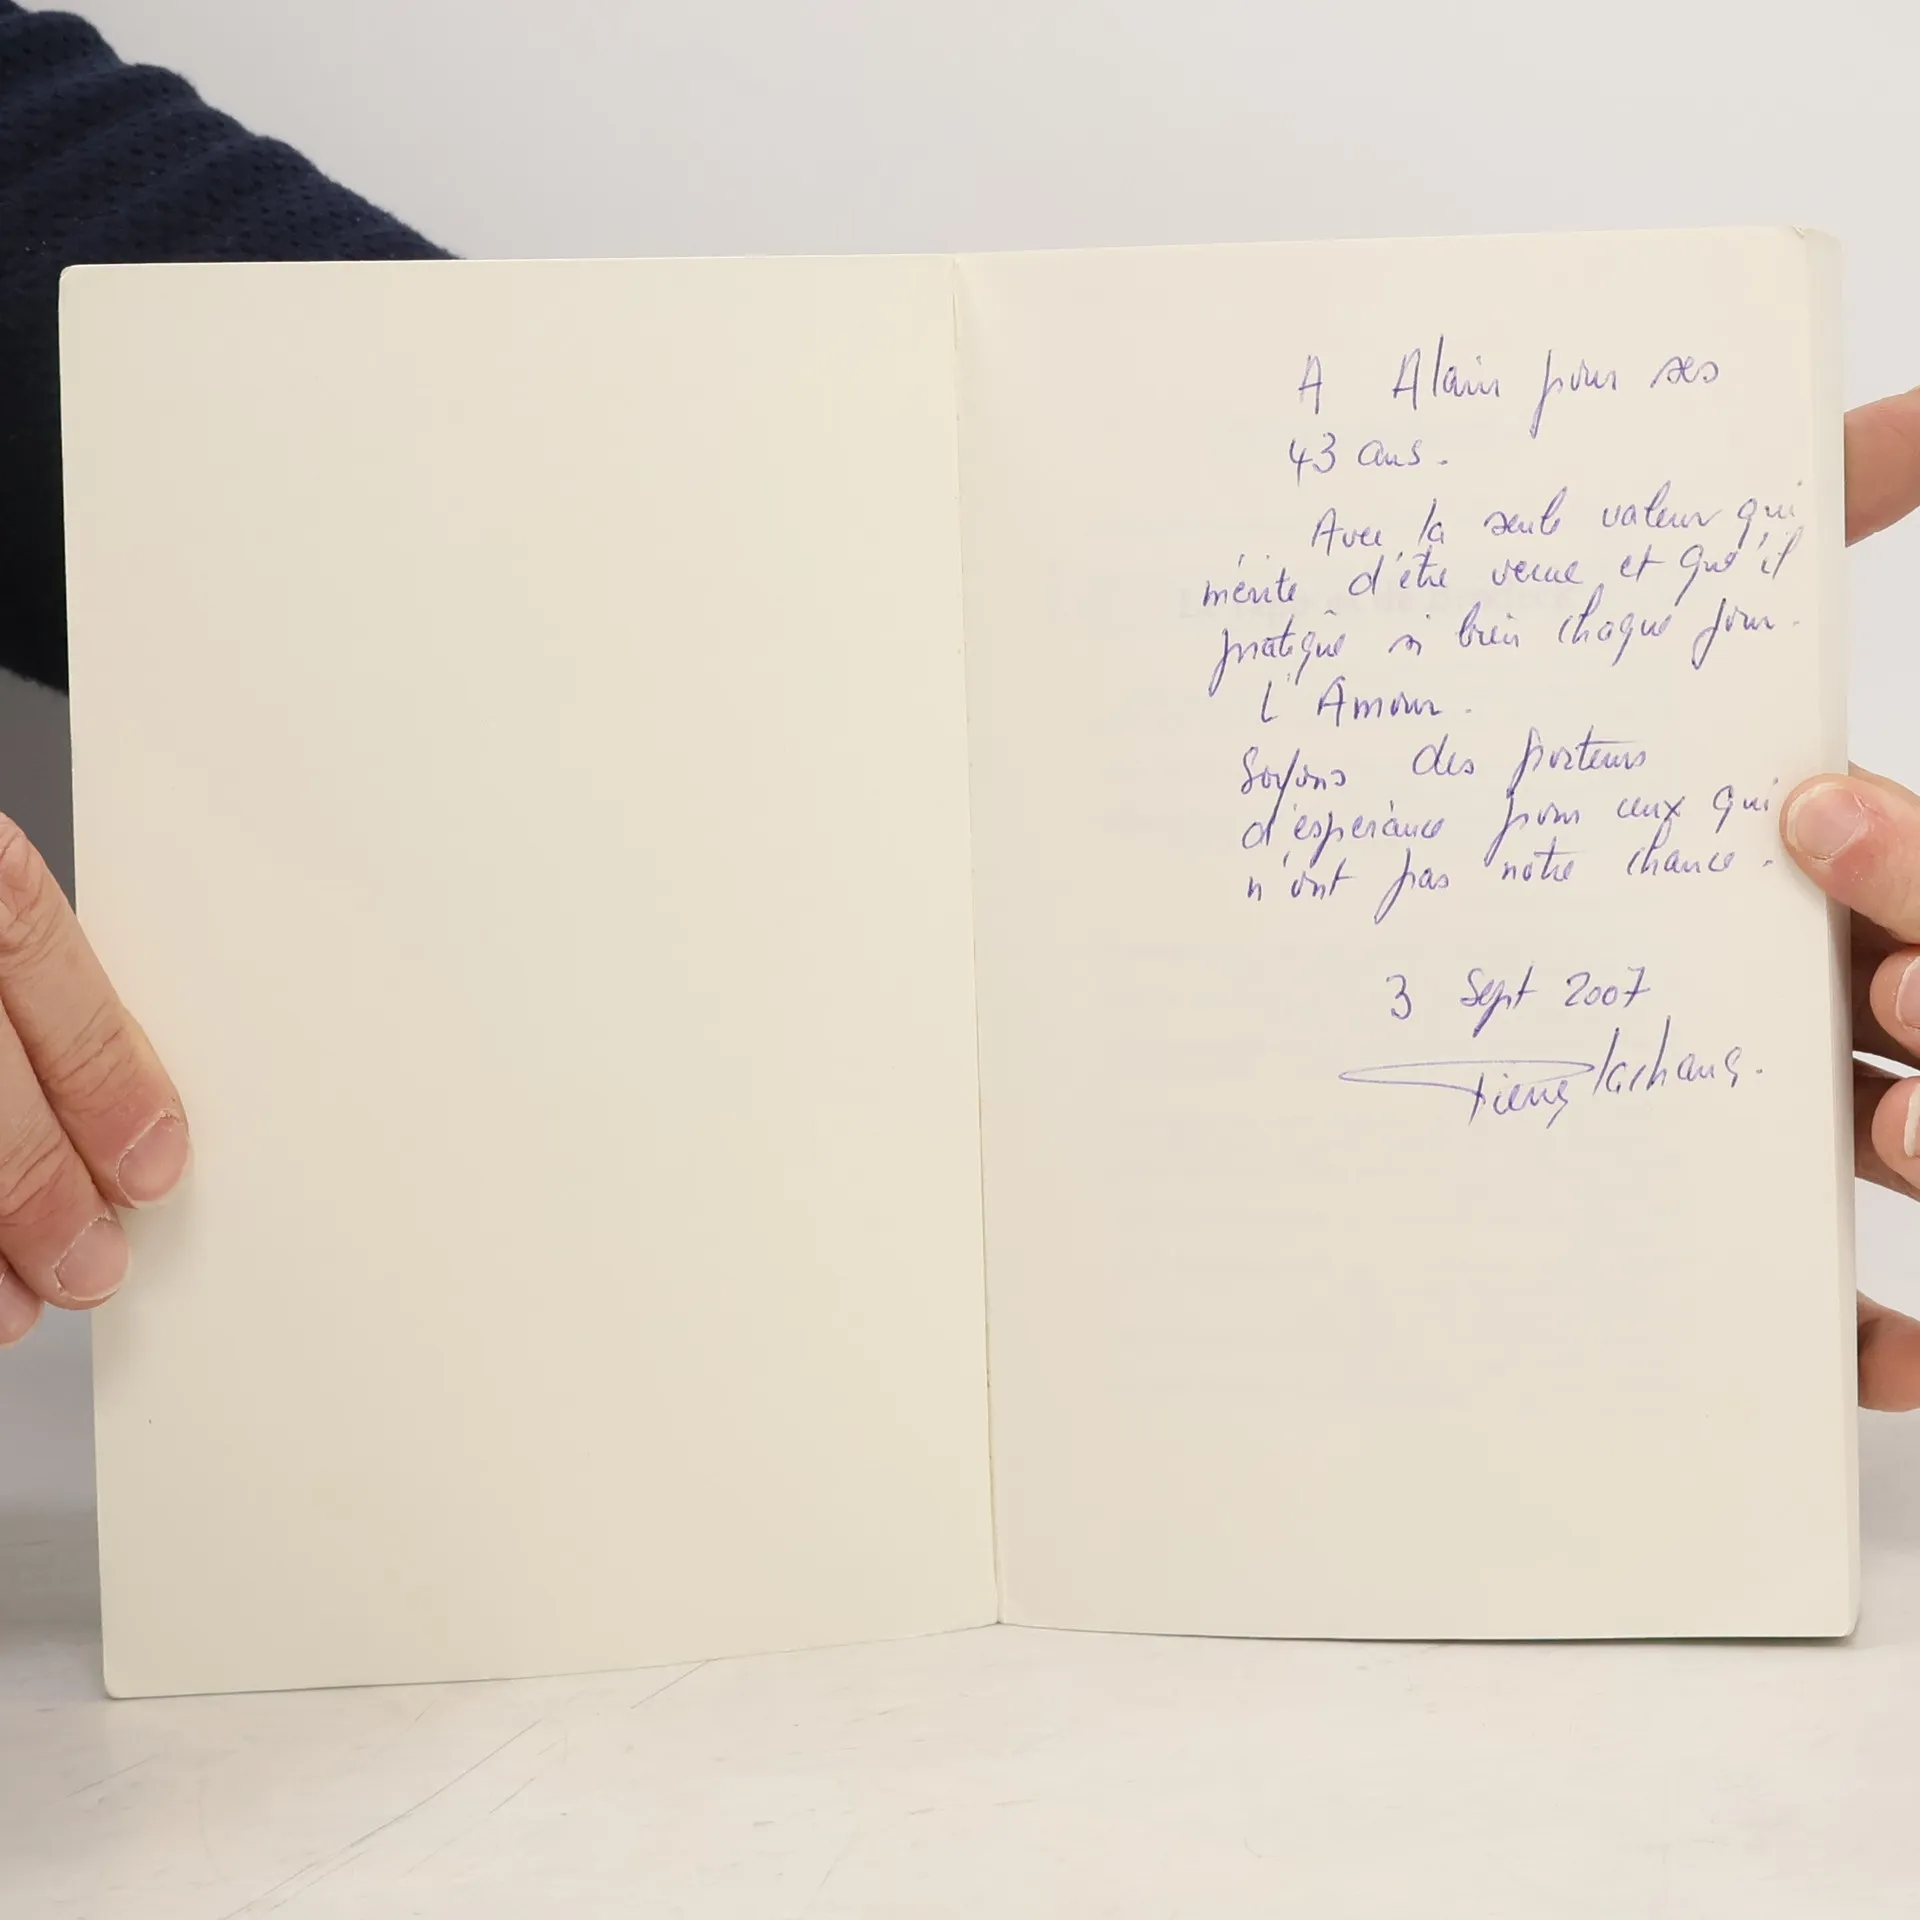 A Alain pour ses
43 ans.
Avec la seule valeur qui
mérite d'être vécue et qu'il
pratique si bien chaque jour.
L'Amour.
Soyons des porteurs
d'espérance pour ceux qui
n'ont pas notre chance.
3 Sept 2007
Pierre